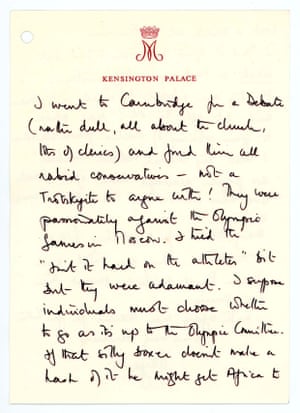 M
KENSINGTON PALACE
I went to Cambridge for a Debate
(rather dull, all about the church,
lots of clerics) and found them all
rabid conservatives – not a
Trotskyite to argue with! They were
passionately against the Olympic
Games in Moscow. I tried the
"isn't it hard on the athletes" bit
but they were adamant. I suppose
individuals must choose whether
to go as its up to the Olympic Comittee.
If that silly boxer doesn't make a
hash of it he might get Africa to